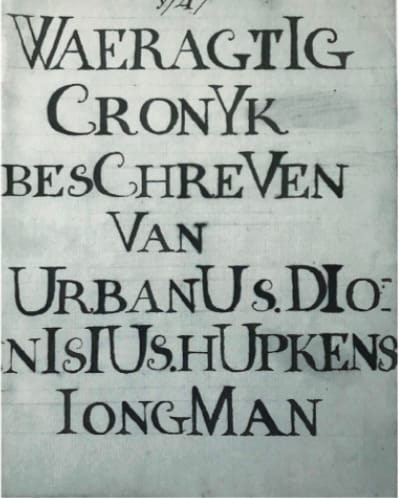 WAERAGTIG
CRONYK
BESCHREVEN
VAN
URBANUS. DIO=
NISIUS. HUPKENS
IONGMAN